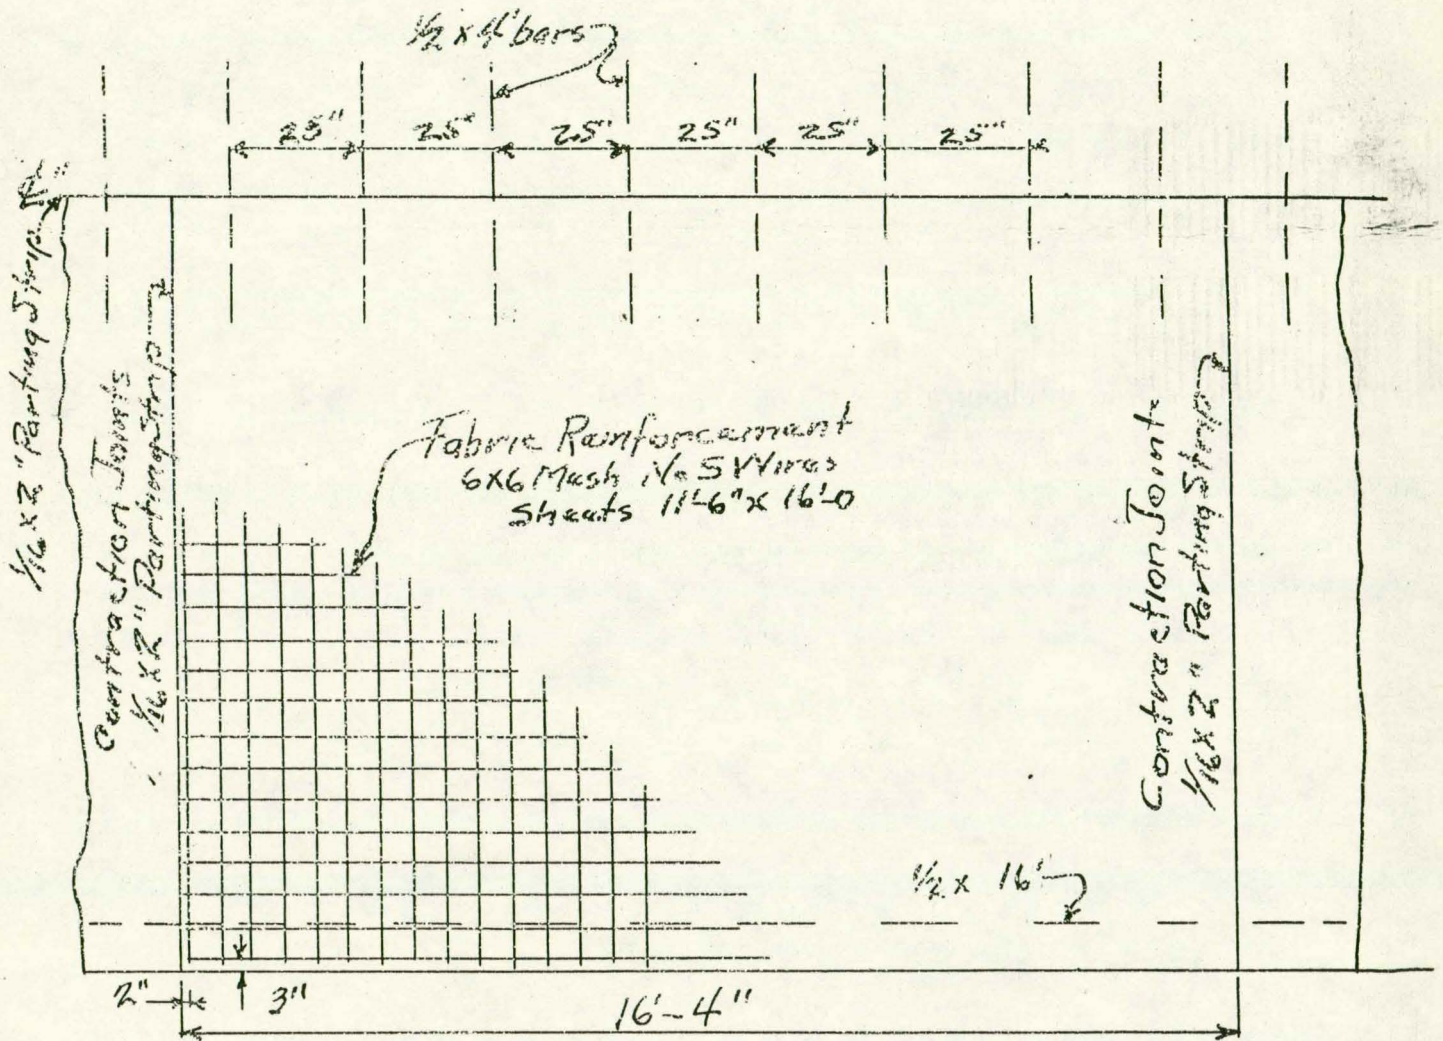 1/2 x 4' bars
25" 25" 25" 25" 25" 25"
1/16 x 2" Parting Strip
Contraction Joint
1/16 x 2" Parting Strip
Fabric Reinforcement
6x6 Mesh No 5 Wires
Sheets 11'-6" x 16'-0
Contraction Joint
1/16 x 2" Parting Strip
1/2 x 16'
2"
3"
16'-4"